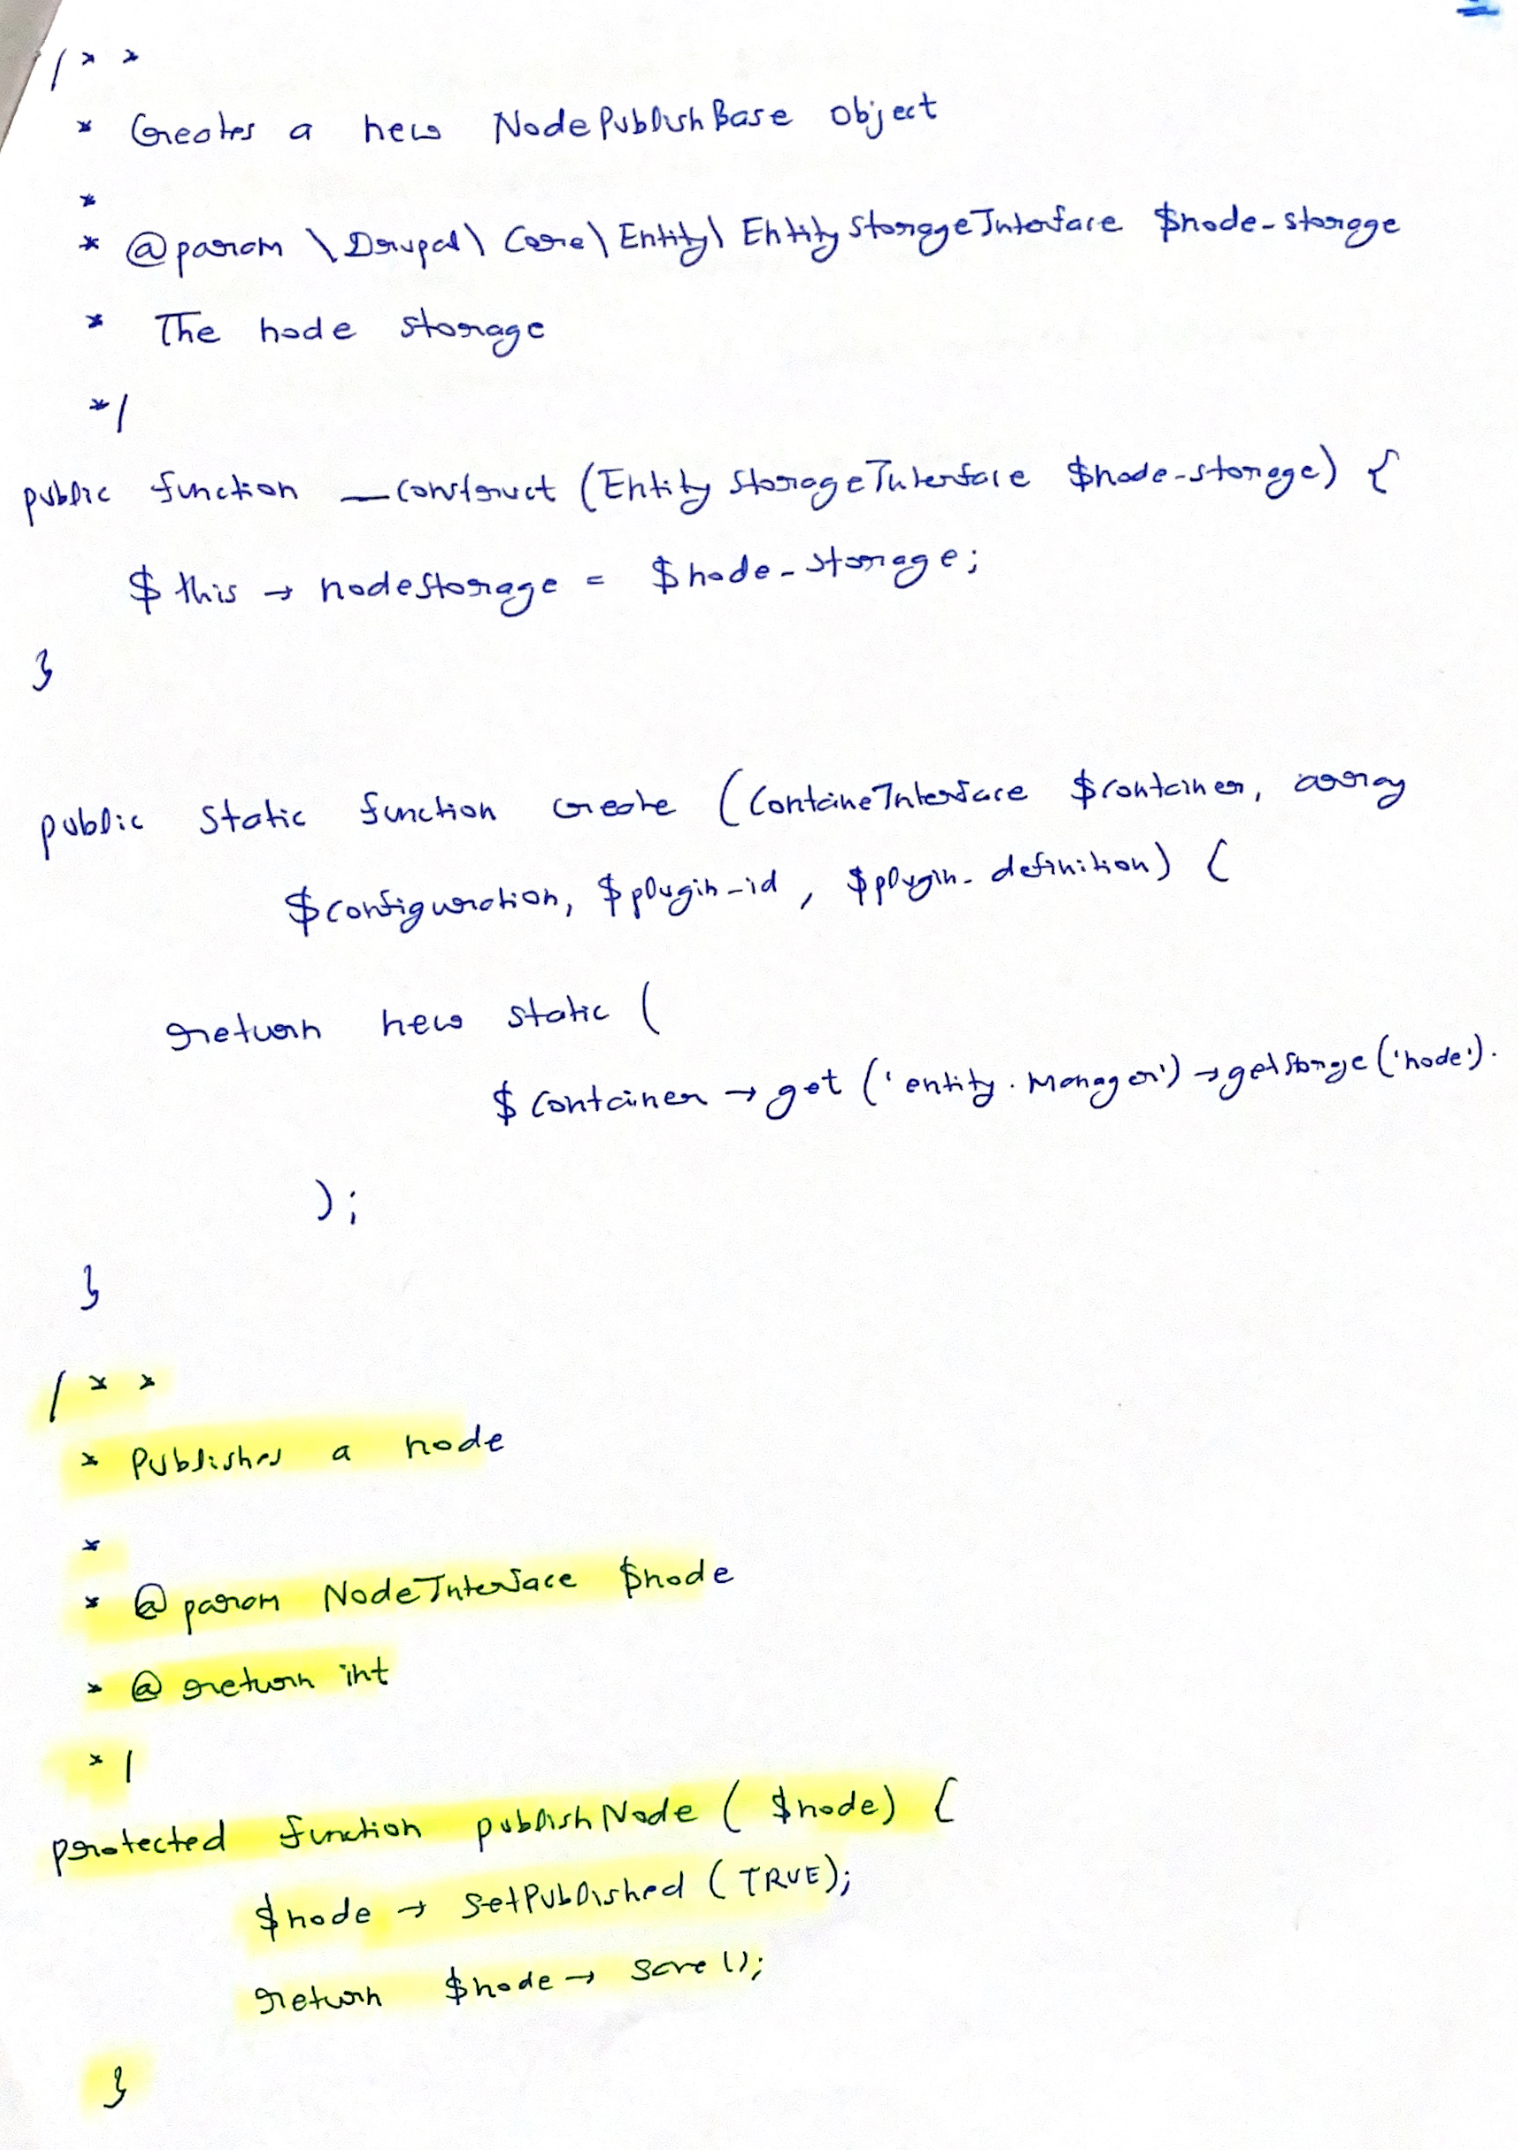 /**
* Creates a new NodePublishBase object
*
* @param \Drupal\Core\Entity\EntityStorageInterface $node-storage
* The node storage
*/
public function __construct (EntityStorageInterface $node-storage) {
$this → nodeStorage = $node-storage;
}
public static function create (ContaineInterface $container, array
$configuration, $plugin-id, $plugin-definition) {
return new static (
$container → get ('entity.manager') → getStorage ('node').
);
}
/**
* Publishes a node
*
* @param NodeInterface $node
* @return int
*/
protected function publishNode ($node) {
$node → setPublished (TRUE);
return $node → save ();
}